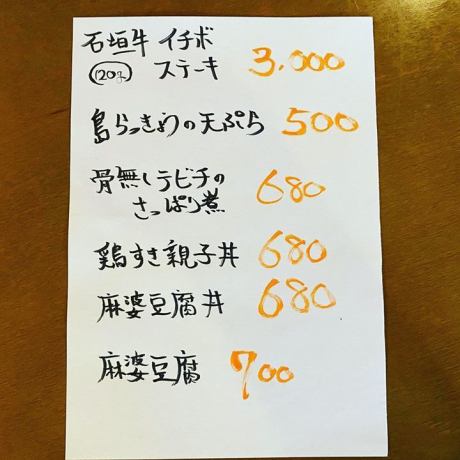 石垣牛 イチボ
(120g) ステーキ 3,000
島らっきょうの天ぷら 500
骨無しテビチの
さっぱり煮 680
鶏すき親子丼 680
麻婆豆腐丼 680
麻婆豆腐 700